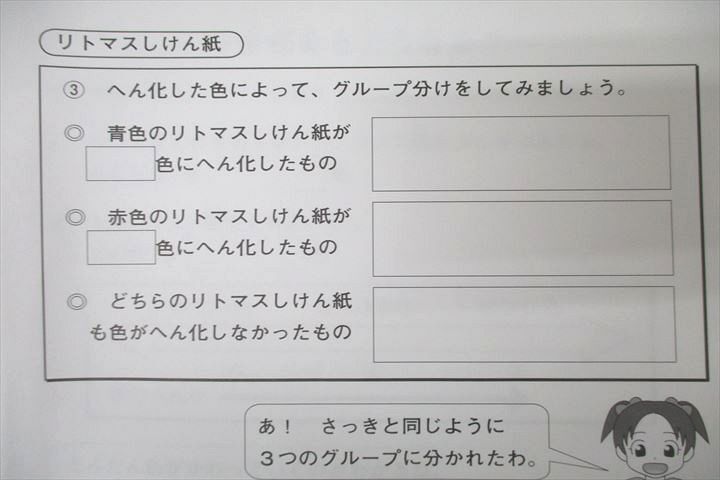 リトマスしけん紙
③ へん化した色によって、グループ分けをしてみましょう。
◎ 青色のリトマスしけん紙が
色にへん化したもの
◎ 赤色のリトマスしけん紙が
色にへん化したもの
◎ どちらのリトマスしけん紙
も色がへん化しなかったもの
あ！ さっきと同じように
３つのグループに分かれたわ。